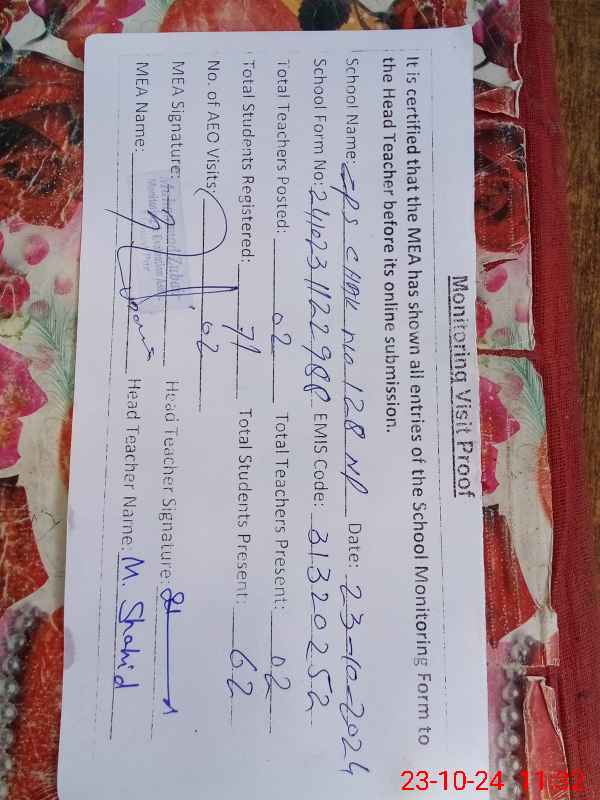 Monitoring Visit Proof
It is certified that the MEA has shown all entries of the School Monitoring Form to
the Head Teacher before its online submission.
School Name: GPS CHAK NO 128 NP Date: 23-10-2024
School Form No: EMIS Code: 31320252
Total Teachers Posted: 02 Total Teachers Present: 02
Total Students Registered: 71 Total Students Present: 62
No. of AEO Visits: 02
MEA Signature: Head Teacher Signature:
MEA Name: Head Teacher Name: M. Shahid
23-10-24 11:32